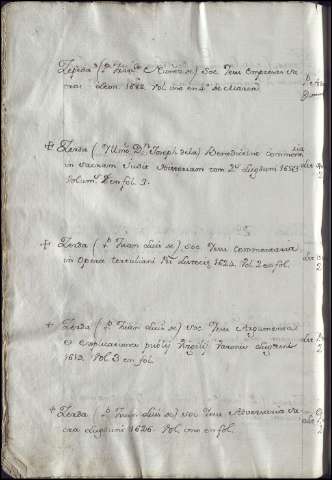 Zepeda (P. Fran.co Nuñez de) Soc. Iesu Empresas sa
cras Leon 1682. Vol. uno en 4.
Zerda (Yllmo. Dn. Joseph de la) Benedictine commentaria
in sacram Judit Historiam tom 2. Lugduni 1653
Volum. 2 en fol. 3.
Zerda (P. Juan Luis de) Soc. Iesu Commentaria
in opera Tertuliani Lutecie 1624. Vol 2 en fol.
Zerda (P. Juan Luis de) Soc. Iesu Argumenta
et explicationes publij Virgilij Maronis Lugduni
1619. Vol 3 en fol.
Zerda (P. Juan Luis de) Soc. Iesu Adversaria sa
cra Lugduni 1626. Vol. uno en fol.